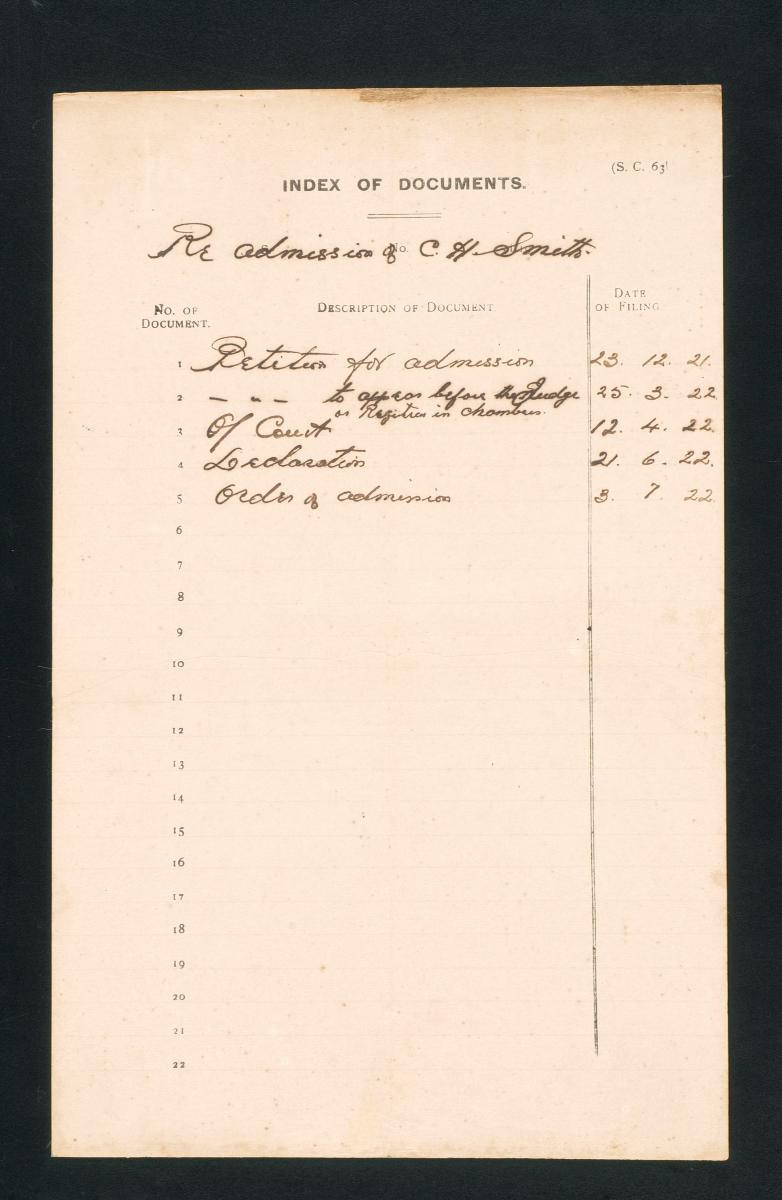 (S. C. 63)
INDEX OF DOCUMENTS.
Re admission of C. H. Smith.
No.
No. of Document.
Description of Document
Date of Filing
1 Petition for admission 23. 12. 21.
2 — " — to appear before the Judge 25. 3. 22
or Registrar in chambers.
3 O/ Court 12. 4. 22.
4 Declaration 21. 6. 22.
5 Order of admission 3. 7. 22
6
7
8
9
10
11
12
13
14
15
16
17
18
19
20
21
22